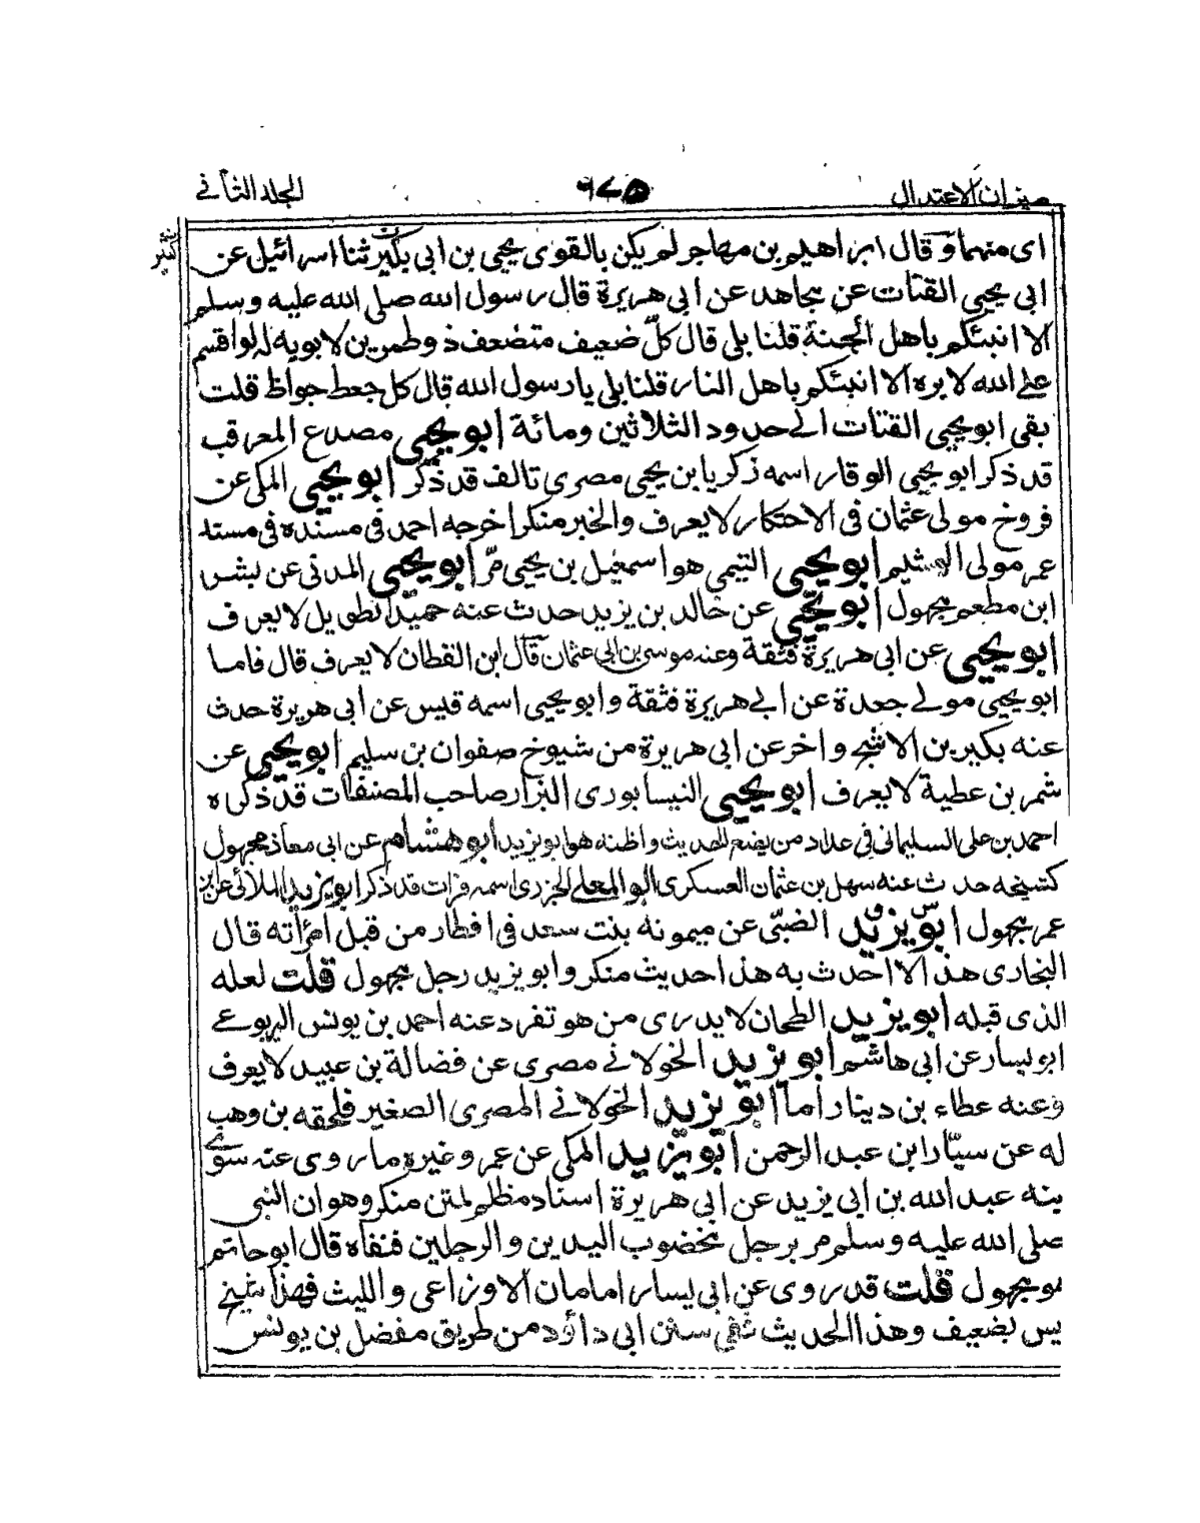 ميزان الاعتدال ٦٧٥ المجلد الثاني
اى منهما وقال ابراهيم بن مهاجر لم يكن بالقوى يحيى بن ابى بكير ثنا اسرائيل عن
ابى يحيى القتات عن مجاهد عن ابى هريرة قال رسول الله صلى الله عليه وسلم
الا انبئكم باهل الجنة قلنا بلى قال كل ضعيف متضعف ذو طمرين لا يوبه له لو اقسم
على الله لابره الا انبئكم باهل النار قلنا بلى يا رسول الله قال كل جعظ جواظ قلت
بقى ابو يحيى القتات الے حدود الثلاثين ومائة ابو يحيى مصدع المعرقب
قد ذكر ابو يحيى الوقار اسمه زكريا بن يحيى مصرى تالف قد ذكر ابو يحيى المكى عن
فروخ مولى عثمان فى الاحتكار لا يعرف والخبر منكر اخرجه احمد فى مسنده فى مسند
عمر مولى ابو يحيى التيمى هو اسمعيل بن يحيى مرّ ابو يحيى المدنى عن بشر
ابن مطعم مجهول ابو يحيى عن خالد بن يزيد حدث عنه حميد الطويل لا يعرف
ابو يحيى عن ابى هريرة فثقة وعنه موسى بن ابى عثمان قال ابن القطان لا يعرف قال فاما
ابو يحيى مولے جعدة عن ابے هريرة فثقة وابو يحيى اسمه قيس عن ابى هريرة حدث
عنه بكير بن الاشج واخر عن ابى هريرة من شيوخ صفوان بن سليم ابو يحيى عن
شمر بن عطية لا يعرف ابو يحيى النيسابورى البزار صاحب المصنفات قد ذكره
احمد بن على السليمانى فى عداد من يضع الحديث واظنه هو ابو يزيد ابو هشام عن ابى معاذ مجهول
كشيخه حدث عنه سهل بن عثمان العسكرى ابو المعلى الجزرى اسمه فرات قد ذكر ابو يزيد الملائى عن
عمر مجهول ابو يزيد الضبّى عن ميمونه بنت سعد فى افطار من قبل امرأته قال
البخارى هذا لا احدث به هذا حديث منكر وابو يزيد رجل مجهول قلت لعله
الذى قبله ابو يزيد الطحان لا يدرى من هو تفرد عنه احمد بن يونس اليربوعے
ابو يسار عن ابى هاشم ابو يزيد الخولانے مصرى عن فضالة بن عبيد لا يعرف
وعنه عطاء بن دينار أما ابو يزيد الخولانے المصرى الصغير فلحقه بن وهب
له عن سيّار ابن عبد الرحمن ابو يزيد المكى عن عمر وغيره ما روى عنه سوے
ينه عبد الله بن ابى يزيد عن ابى هريرة اسناد مظلم لمتن منكر وهو ان النبى
صلى الله عليه وسلم مر برجل مخضوب اليدين والرجلين فنفاه قال ابو حاتم
هو مجهول قلت قد روى عن ابى يسار امامان الاوزاعى والليث فهذا شيخ
يس بضعيف وهذا الحديث ففى سنن ابى داؤد من طريق مفضل بن يونس